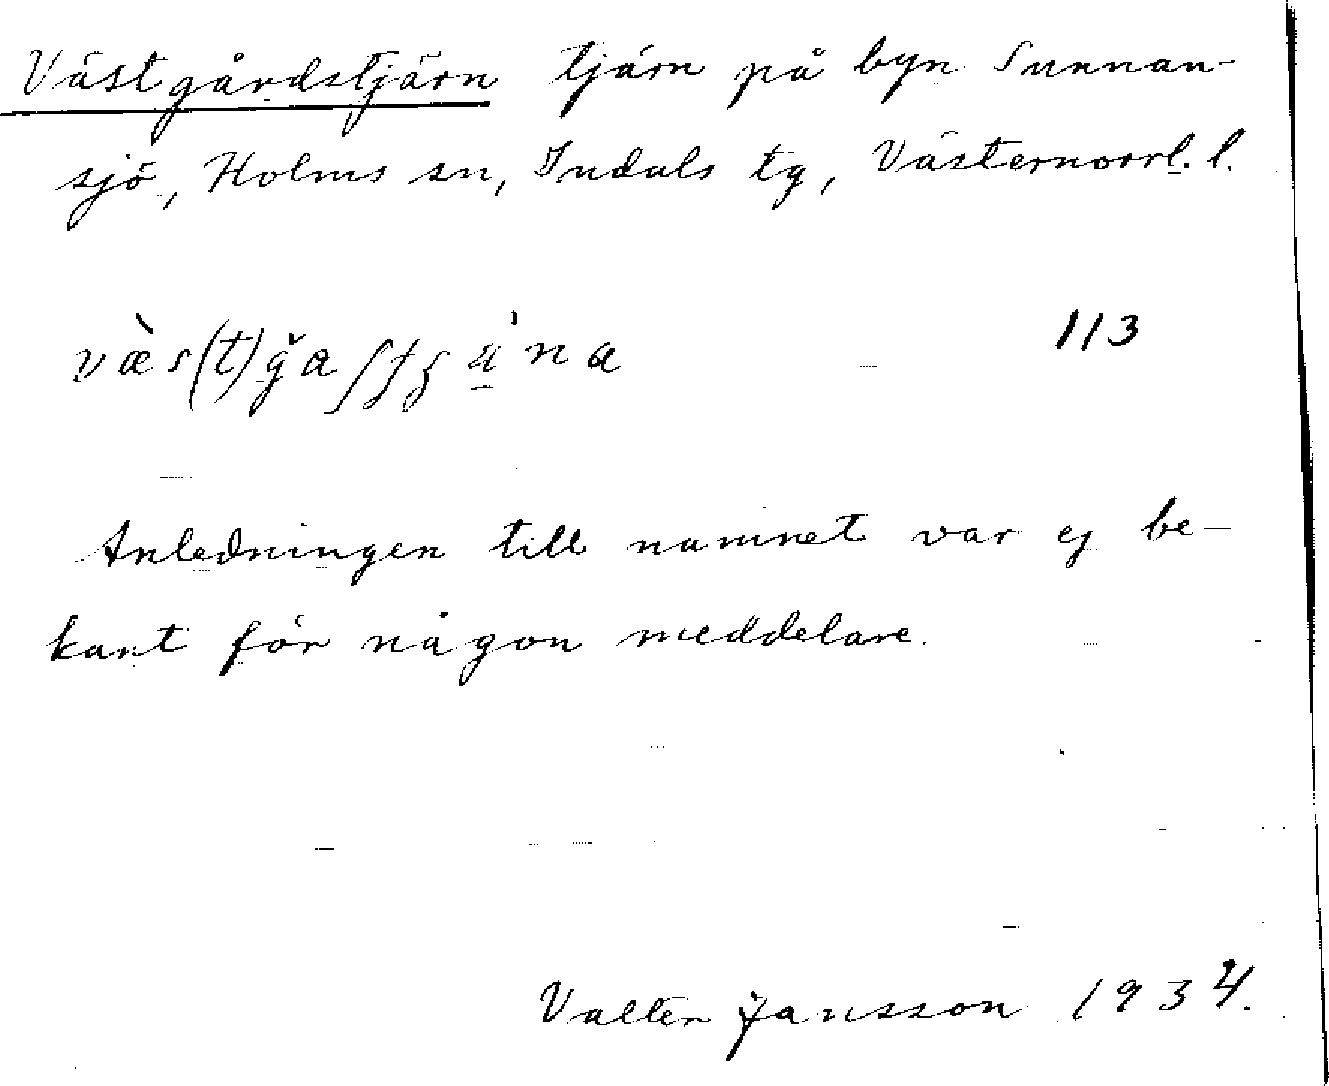 Västgårdstjärn tjärn på byn Sunnan-
sjö, Holms sn, Indals tg, Västernorrl. l.
113
Anledningen till namnet var ej be-
kant för någon meddelare.
Valter Jansson 1934.